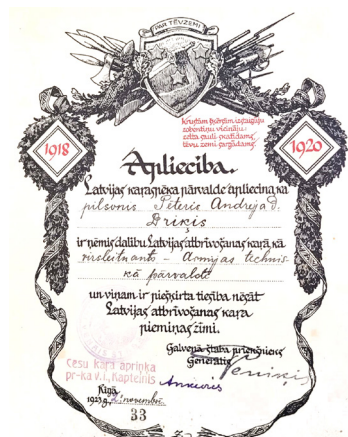 PAR TĒVZEMI
Krustim šķērsim izstaigāju
zobentiņu vicināju:
zelta
tēvu zemi sargādams.
1918
1920
Apliecība.
Latvijas karaspēka pārvalde apliecina, ka
pilsonis Pēteris Andreja d.
Driķis
ir ņēmis dalību Latvijas atbrīvošanas karā kā
virsleitnants – Armijas technis-
kā pārvaldē
un viņam ir piešķirta tiesība nēsāt
Latvijas atbrīvošanas kara
piemiņas zīmi.
Galvenā štaba priekšnieks
Ģenerālis
Cēsu kara apriņķa
pr-ka v. i., Kapteinis
Rīgā
1923 g. 2. novembrī.
33